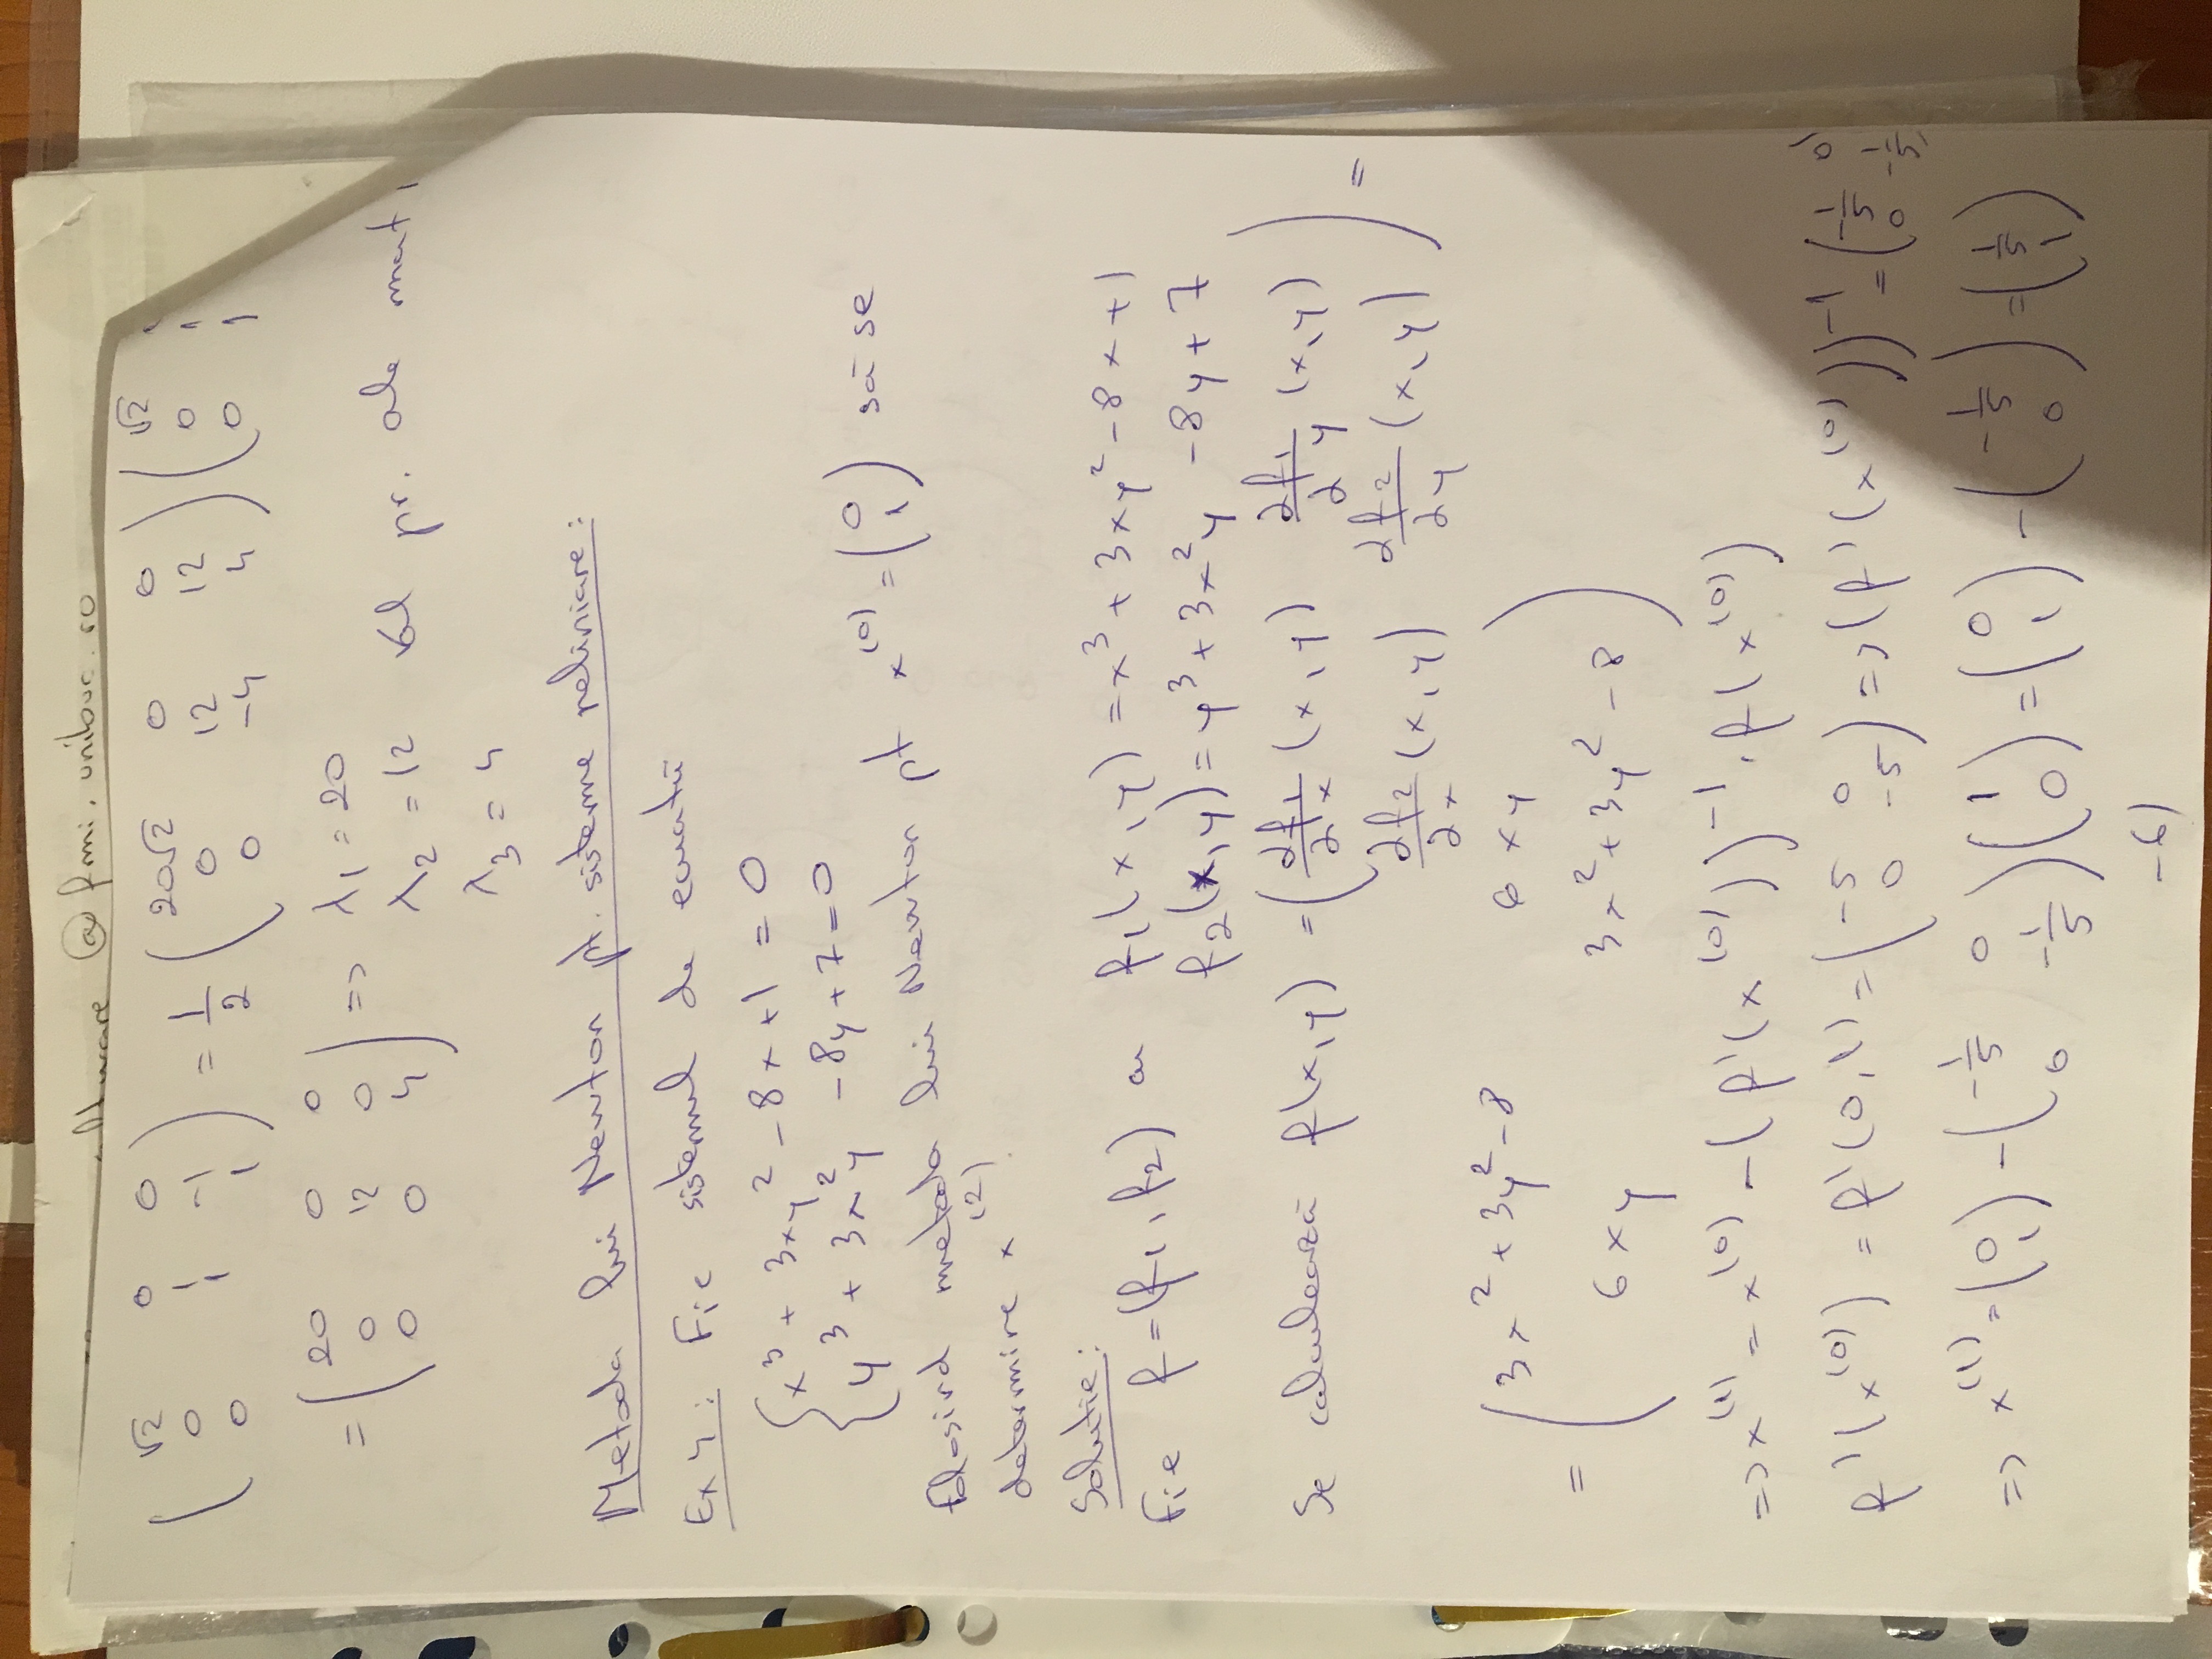 @ fmi.unibuc.ro
(√2 0 0
0 1 -1
0 1 1) = 1/2 (20√2 0 0
0 12 12
0 -4 4) (√2
0
0
= (20 0 0
0 12 0
0 0 4) => λ1 = 20
λ2 = 12 val pr. ale mat
λ3 = 4
Metoda lui Newton pt. sisteme neliniare:
Ex 4: Fie sistemul de ecuatii
{ x³ + 3xy² - 8x + 1 = 0
y³ + 3x²y - 8y + 7 = 0
Folosind metoda lui Newton pt x⁽⁰⁾ = (0
1) să se
determine x⁽²⁾.
Solutie:
Fie f = (f1, f2) cu f1(x,y) = x³ + 3xy² - 8x + 1
f2(x,y) = y³ + 3x²y - 8y + 7
Se calculează f(x,y) = (∂f1/∂x (x,y) ∂f1/∂y (x,y)
∂f2/∂x (x,y) ∂f2/∂y (x,y)) =
= (3x² + 3y² - 8 6xy
6xy 3x² + 3y² - 8)
=> x⁽¹⁾ = x⁽⁰⁾ - (f'(x⁽⁰⁾))⁻¹ · f(x⁽⁰⁾)
f'(x⁽⁰⁾) = f'(0,1) = (-5 0
0 -5) => (f'(x⁽⁰⁾))⁻¹ = (-1/5 0
0 -1/5)
=> x⁽¹⁾ = (0
1) - (-1/5 0
0 -1/5) (1
0) = (0
1) - (-1/5
0) = (1/5
1)
-6)